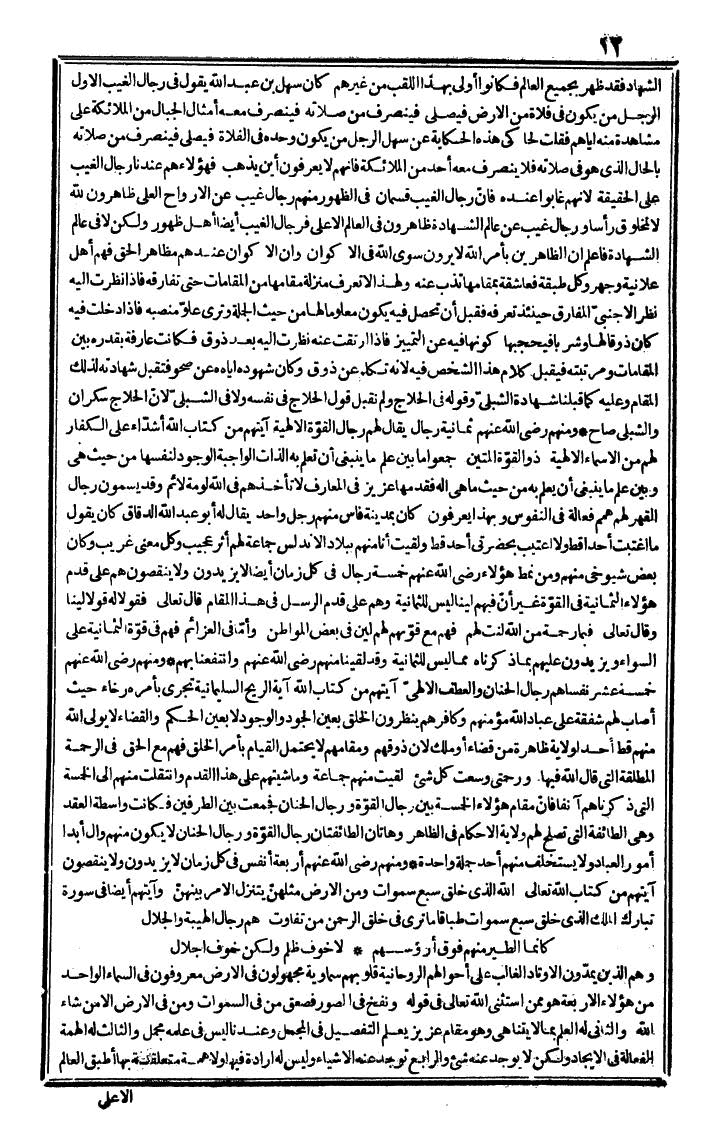 ١٣
الشهاد فقد ظهر بجميع العالم فكانوا أولى بهذا اللقب من غيرهم كان سهل بن عبد الله يقول فى رجال الغيب الاول
الرجل من يكون فى فلاة من الارض فيصلى فينصرف من صلاته فينصرف معه أمثال الجبال من الملائكة على
مشاهدة منه اياهم فقلت لحاكى هذه الحكاية عن سهل الرجل من يكون وحده فى الفلاة فيصلى فينصرف من صلاته
بالحال الذى هو فى صلاته فلا ينصرف معه أحد من الملائكة فانهم لا يعرفون أين يذهب فهؤلاء هم عندنا رجال الغيب
على الحقيقة لانهم غابوا عنده فان رجال الغيب قسمان فى الظهور منهم رجال غيب عن الارواح العلى ظاهرون لله
لا لمخلوق رأسا ورجال غيب عن عالم الشهادة ظاهرون فى العالم الاعلى فرجال الغيب أيضا أهل ظهور ولكن لا فى عالم
الشهادة فاعلم ان الظاهرين بأمر الله لا يرون سوى الله فى الاكوان وان الاكوان عندهم مظاهر الحق فهم أهل
علانية وجهر وكل طبقة فعاشقة بمقامها تذب عنه ولهذا لا تعرف منزلة مقامها من المقامات حتى تفارقه فاذا نظرت اليه
نظر الاجنبىّ المفارق حينئذ تعرفه فقبل أن تحصل فيه يكون معلوما لها من حيث الجلة وترى علوّ منصبه فاذا دخلت فيه
كان ذوقا لها وشربا فيحجبها كونها فيه عن التمييز فاذا ارتقت عنه نظرت اليه بعد ذوق فكانت عارفة بقدره بين
المقامات ومرتبته فيقبل كلام هذا الشخص فيه لانه تكلم عن ذوق وكان شهوده اياه عن صحو فتقبل شهادته لذلك
المقام وعليه كما قبلنا شهادة الشبلىّ وقوله فى الحلاج ولم نقبل قول الحلاج فى نفسه ولا فى الشبلىّ لانّ الحلاج سكران
والشبلى صاح * ومنهم رضى الله عنهم ثمانية رجال يقال لهم رجال القوّة الالهية آيتهم من كتاب الله أشدّاء على الكفار
لهم من الاسماء الالهية ذو القوّة المتين جمعوا ما بين علم ما ينبغى أن تعلم به الذات الواجبة الوجود لنفسها من حيث هى
وبين علم ما ينبغى أن يعلم به من حيث ما هى اله فقدمها عزيز فى المعارف لا تأخذهم فى الله لومة لائم وقد يسمون رجال
القهر لهم همم فعالة فى النفوس وبهذا يعرفون كان بمدينة فاس منهم رجل واحد يقال له أبو عبد الله الدقاق كان يقول
ما اغتبت أحدا قط ولا اغتيب بحضرتى أحد قط ولقيت أنا منهم ببلاد الاندلس جماعة لهم أثر عجيب وكل معنى غريب وكان
بعض شيوخى منهم ومن نمط هؤلاء رضى الله عنهم خمسة رجال فى كل زمان أيضا لا يزيدون ولا ينقصون هم على قدم
هؤلاء الثمانية فى القوّة غير أنّ فيهم لينا ليس للثمانية وهم على قدم الرسل فى هذا المقام قال تعالى فقولا له قولا لينا
وقال تعالى فبما رحمة من الله لنت لهم فهم مع قوّتهم لهم لين فى بعض المواطن وأمّا فى العزائم فهم فى قوّة الثمانية على
السواء ويزيدون عليهم بما ذكرناه مما ليس للثمانية وقد لقينا منهم رضى الله عنهم وانتفعنا بهم * ومنهم رضى الله عنهم
خمسة عشر نفسا هم رجال الحنان والعطف الالهىّ آيتهم من كتاب الله آية الريح السليمانية تجرى بأمره رخاء حيث
أصاب لهم شفقة على عباد الله مؤمنهم وكافرهم ينظرون الخلق بعين الجود والوجود لا بعين الحكم والقضاء لا يولى الله
منهم قط أحد الولاية ظاهرة من قضاء أو ملك لان ذوقهم ومقامهم لا يحتمل القيام بأمر الخلق فهم مع الحق فى الرحمة
المطلقة التى قال الله فيها ورحمتى وسعت كل شئ لقيت منهم جماعة وماشيتهم على هذا القدم وانتقلت منهم الى الخمسة
التى ذكرناهم آنفا فانّ مقام هؤلاء الخمسة بين رجال القوّة ورجال الحنان فجمعت بين الطرفين فكانت واسطة العقد
وهى الطائفة التى تصلح لهم ولاية الاحكام فى الظاهر وهاتان الطائفتان رجال القوّة ورجال الحنان لا يكون منهم وال أبدا
أمور العباد ولا يستخلف منهم أحد جملة واحدة * ومنهم رضى الله عنهم أربعة أنفس فى كل زمان لا يزيدون ولا ينقصون
آيتهم من كتاب الله تعالى الله الذى خلق سبع سموات ومن الارض مثلهنّ يتنزل الامر بينهنّ وآيتهم أيضا فى سورة
تبارك الملك الذى خلق سبع سموات طباقا ما ترى فى خلق الرحمن من تفاوت هم رجال الهيبة والجلال
كأنما الطير منهم فوق أرؤسهم * لا خوف ظلم ولكن خوف اجلال
وهم الذين يمدّون الاوتاد الغالب على أحوالهم الروحانية قلوبهم سماوية مجهولون فى الارض معروفون فى السماء الواحد
من هؤلاء الاربعة هو ممن استثنى الله تعالى فى قوله ونفخ فى الصور فصعق من فى السموات ومن فى الارض الا من شاء
الله والثانى له العلم بما لا يتناهى وهو مقام عزيز يعلم التفصيل فى المجمل وعندنا ليس فى علمه مجمل والثالث له الهمة
الفعالة فى الايجاد ولكن لا يوجد عنه شئ والرابع توجد عنه الاشياء وليس له ارادة فيها ولا همة متعلقة بها أطبق العالم
الاعلى